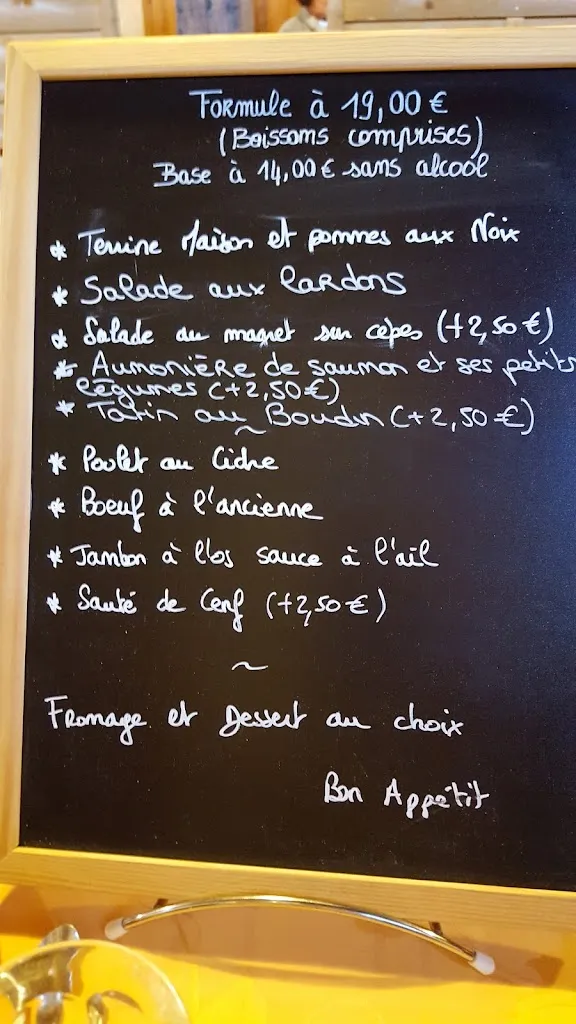 Formule à 19,00 €
(Boissons comprises)
Base à 14,00 € sans alcool
* Terrine Maison et pommes aux Noix
* Salade aux lardons
* Salade au magret sur cèpes (+2,50 €)
* Aumonière de saumon et ses petits
légumes (+2,50 €)
* Tatin au Boudin (+2,50 €)
~
* Poulet au Cidre
* Boeuf à l'ancienne
* Jambon à l'os sauce à l'ail
* Sauté de Cerf (+2,50 €)
~
Fromage et Dessert au choix
Bon Appétit